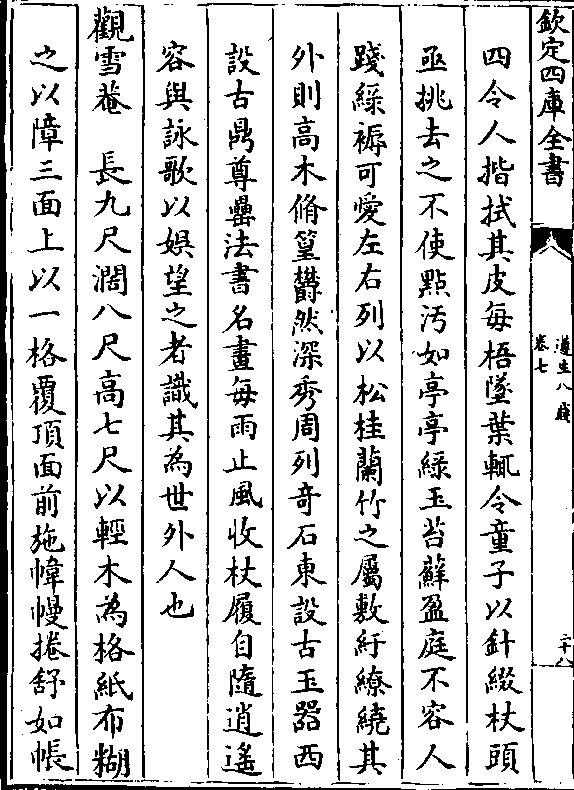 欽定四庫全書
遵生八牋
卷七
二十八
四令人揩拭其皮每梧墜葉輒令童子以針綴杖頭
亟挑去之不使點汚如亭亭綠玉苔蘚盈庭不容人
踐綠褥可愛左右列以松桂蘭竹之屬敷紆繚繞其
外則高木脩篁鬱然深秀周列奇石東設古玉器西
設古鼎尊罍法書名畫每雨止風收杖履自隨逍遙
容與詠歌以娛望之者識其為世外人也
觀雪菴　長九尺濶八尺高七尺以輕木為格紙布糊
之以障三面上以一格覆頂面前施幃幔捲舒如帳